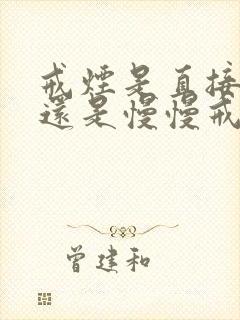 戒煙是直接
還是慢慢戒
曾建和